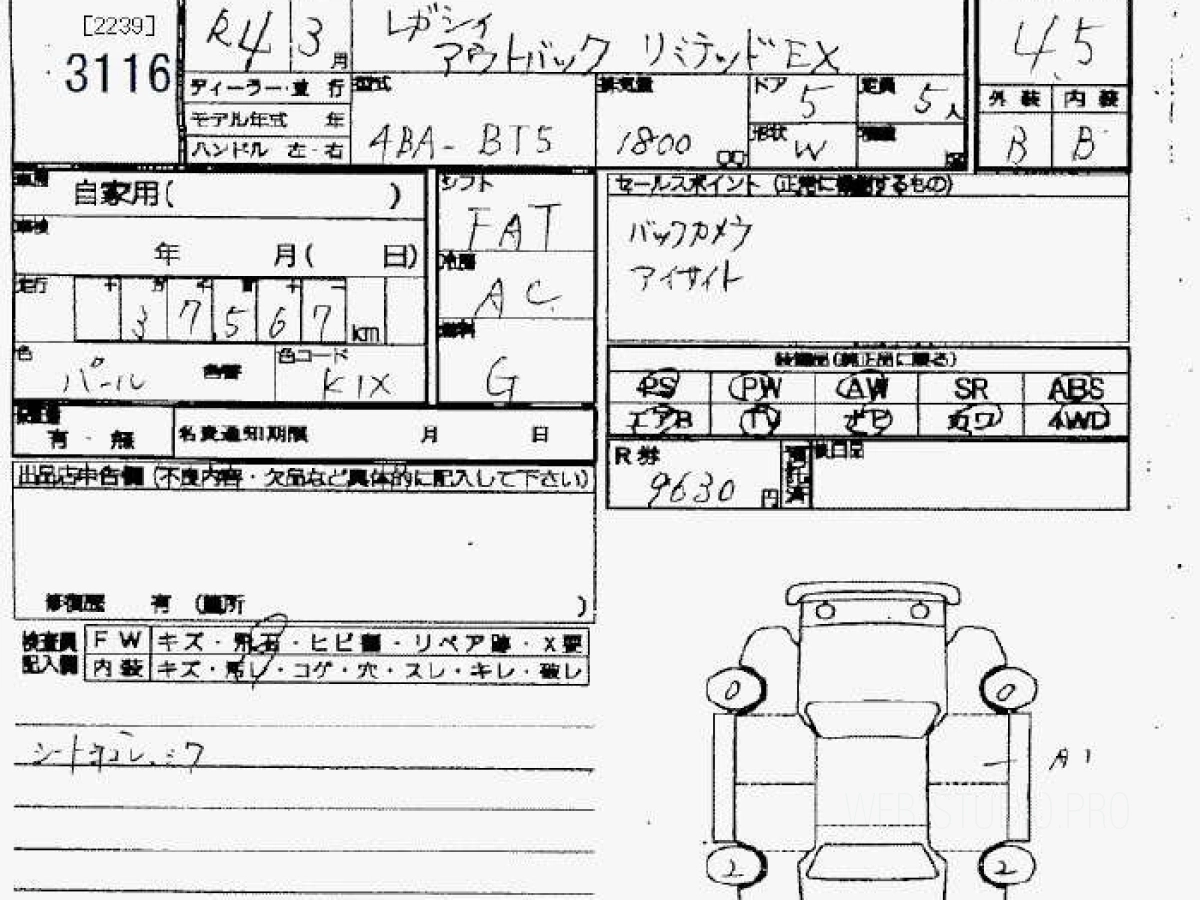 [2239]
3116
R4 3月
レガシィ
アウトバック リミテッドEX
4.5
ディーラー・並 行
モデル年式 年
ハンドル 左・右
型式
4BA-BT5
排気量
1800
ドア 5
定員 5人
形状 W
外装 内装
B B
自家用( )
車検
年 月( 日)
走行
37567 km
色
パール
色コード
K1X
シフト
FAT
冷房
AC
燃料
G
セールスポイント (正常に機能するもの)
バックカメラ
アイサイト
装備品(純正品に限る)
PS PW AW SR ABS
エアB TV ナビ カワ 4WD
有・無
名変通知期限 月 日
R券
9630円
後日品
出品店申告欄 (不良内容・欠品など具体的に記入して下さい)
修復歴 有 (箇所 )
検査員
記入欄
FW キズ・飛石・ヒビ割・リペア跡・X要
内装 キズ・汚レ・コゲ・穴・スレ・キレ・破レ
シートヨゴレ、シワ
0 0
A1
2 2